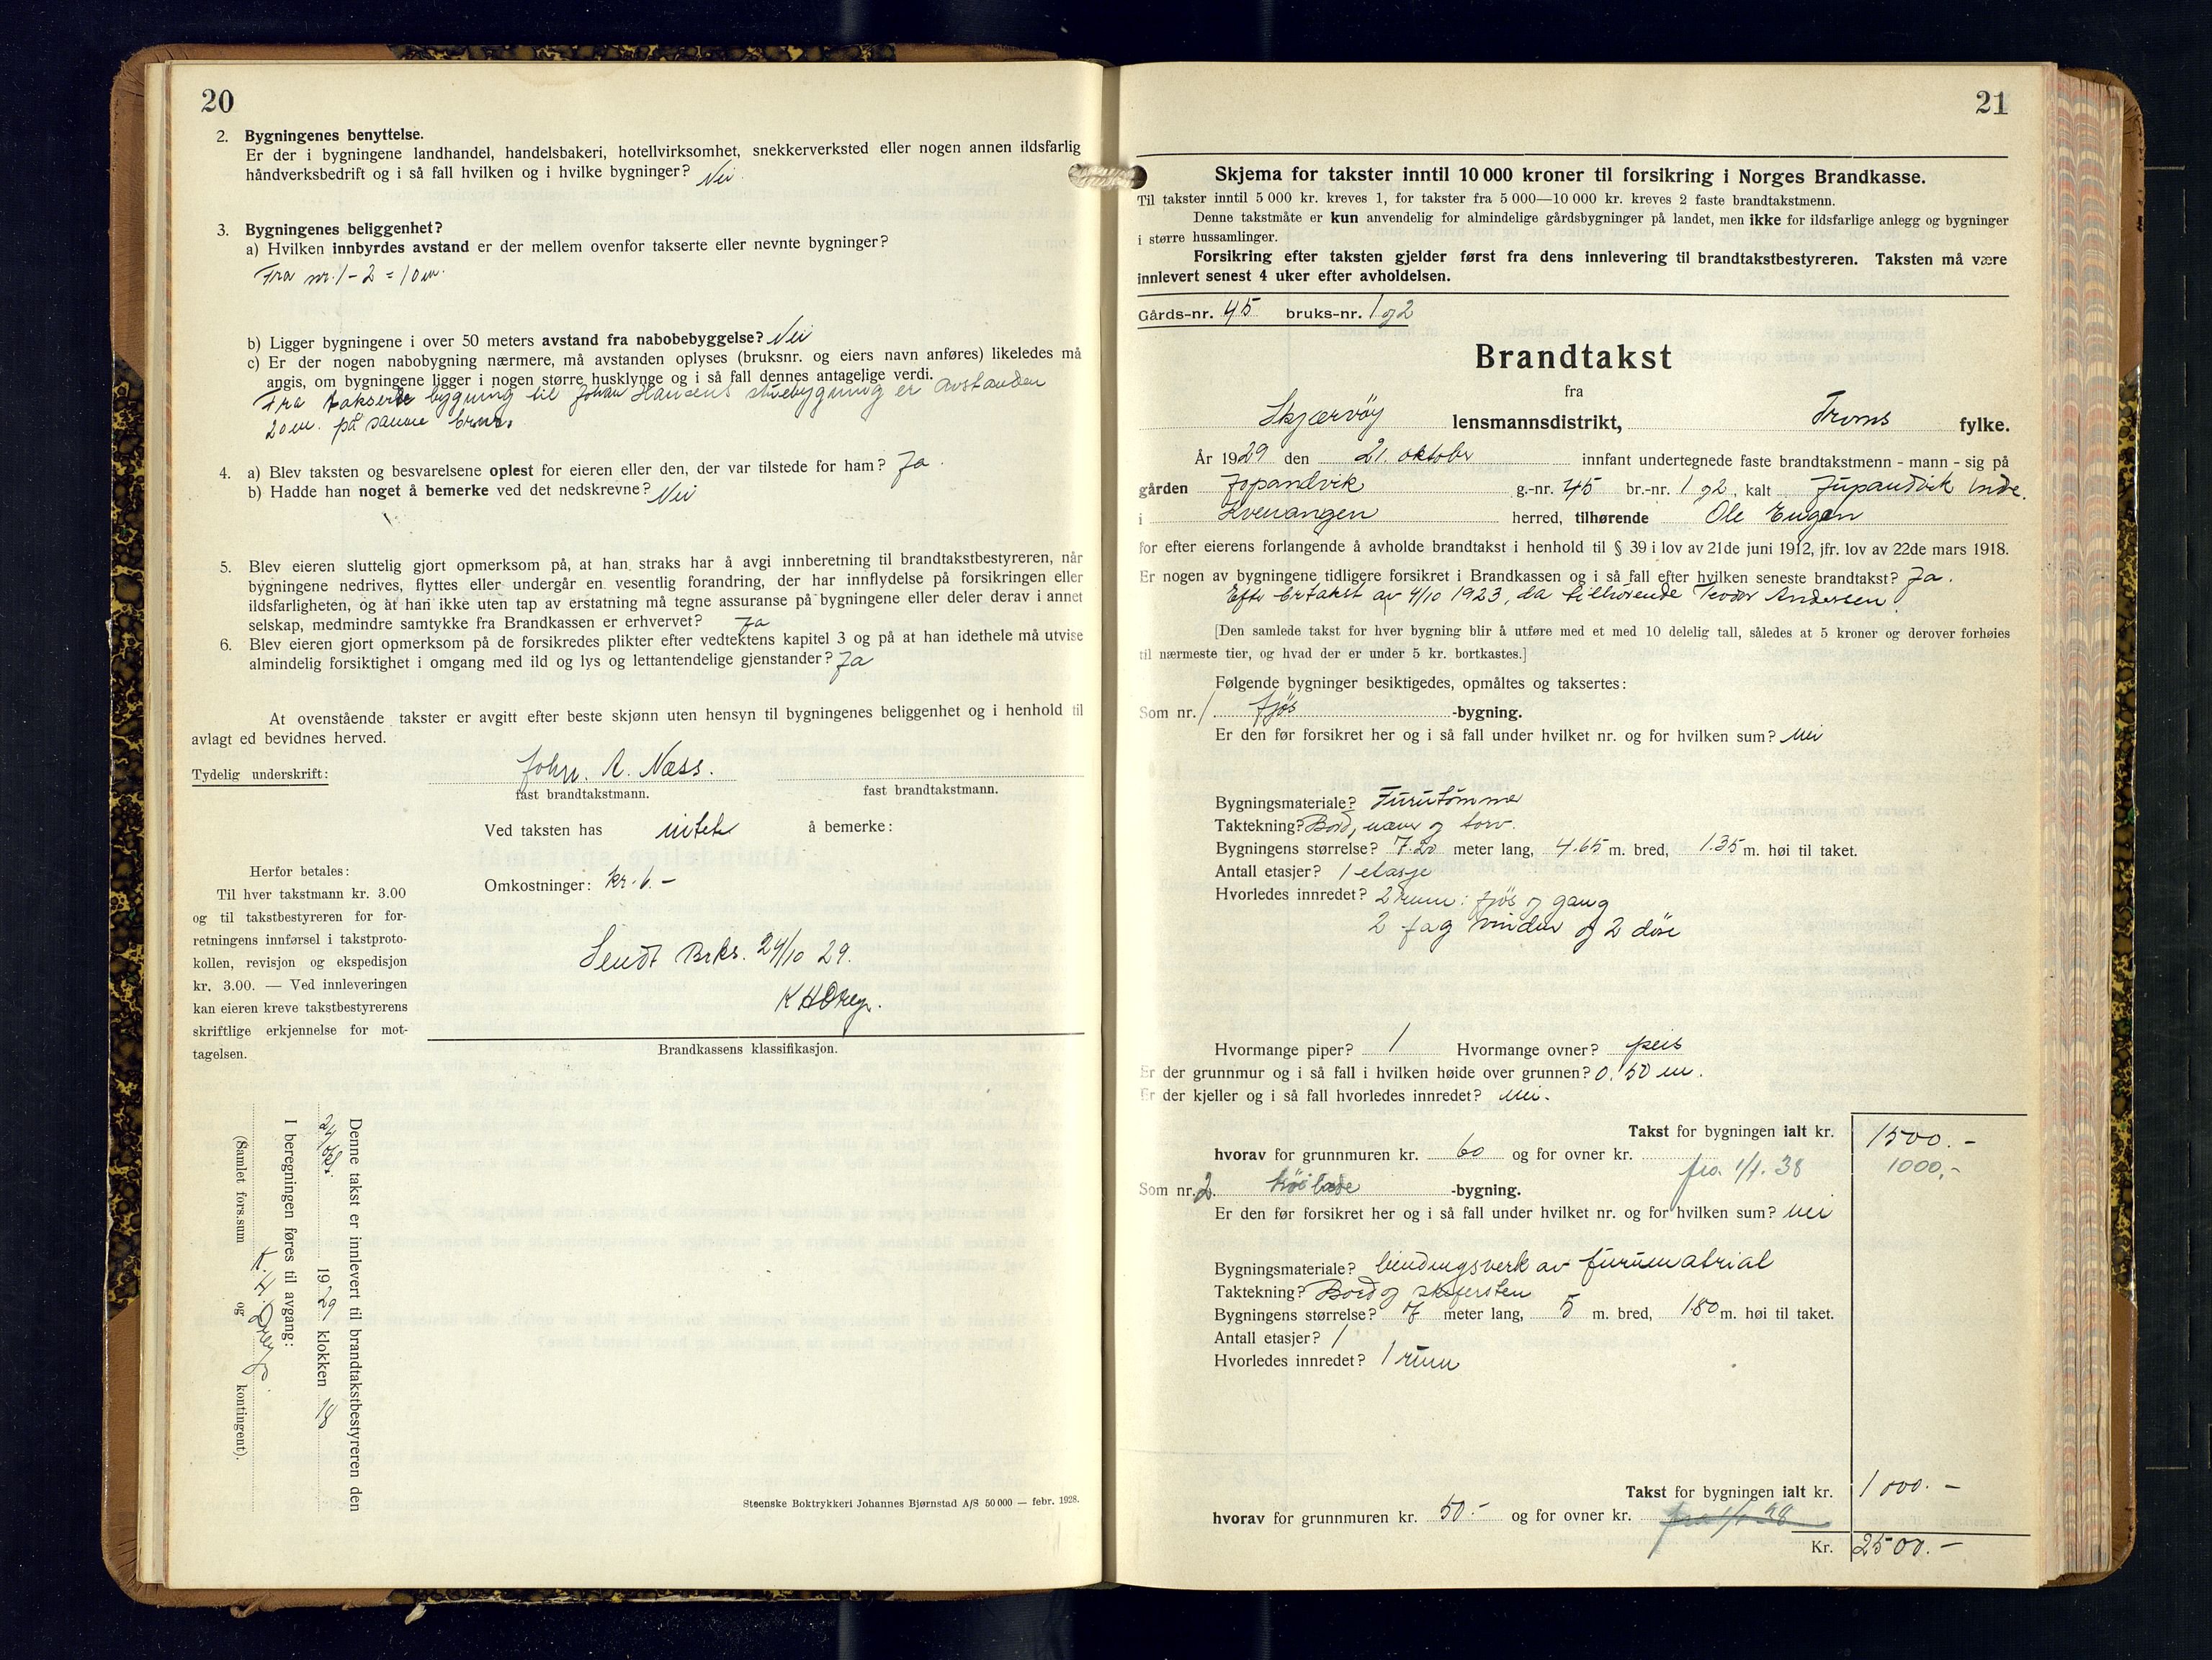 20
2. Bygningenes benyttelse.
Er der i bygningene landhandel, handelsbakeri, hotellvirksomhet, snekkerverksted eller nogen annen ildsfarlig
håndverksbedrift og i så fall hvilken og i hvilke bygninger? Nei
3. Bygningenes beliggenhet?
a) Hvilken innbyrdes avstand er der mellem ovenfor takserte eller nevnte bygninger?
Fra nr. 1 - 2 = 10 m.
b) Ligger bygningene i over 50 meters avstand fra nabobebyggelse? Nei
c) Er der nogen nabobygning nærmere, må avstanden oplyses (bruksnr. og eiers navn anføres) likeledes må
angis, om bygningene ligger i nogen større husklynge og i så fall dennes antagelige verdi.
Fra takserte bygning til Johan Hansens stuebygning er avstanden
20 m. på samme bruk.
4. a) Blev taksten og besvarelsene oplest for eieren eller den, der var tilstede for ham? Ja.
b) Hadde han noget å bemerke ved det nedskrevne? Nei
5. Blev eieren sluttelig gjort opmerksom på, at han straks har å avgi innberetning til brandtakstbestyreren, når
bygningene nedrives, flyttes eller undergår en vesentlig forandring, der har innflydelse på forsikringen eller
ildsfarligheten, og at han ikke uten tap av erstatning må tegne assuranse på bygningene eller deler derav i annet
selskap, medmindre samtykke fra Brandkassen er erhvervet? Ja
6. Blev eieren gjort opmerksom på de forsikredes plikter efter vedtektens kapitel 3 og på at han idethele må utvise
almindelig forsiktighet i omgang med ild og lys og lettantendelige gjenstander? Ja
At ovenstående takster er avgitt efter beste skjønn uten hensyn til bygningenes beliggenhet og i henhold til
avlagt ed bevidnes herved.
Tydelig underskrift: Johu. A. Næss.
fast brandtakstmann. fast brandtakstmann.
Ved taksten has intet å bemerke:
Omkostninger: kr. 6.-
Herfor betales:
Til hver takstmann kr. 3.00
og til takstbestyreren for for-
retningens innførsel i takstproto-
kollen, revisjon og ekspedisjon
kr. 3.00. — Ved innleveringen
kan eieren kreve takstbestyrerens
skriftlige erkjennelse for mot-
tagelsen.
Sendt Brks. 24/10 29.
Brandkassens klassifikasjon.
Denne takst er innlevert til brandtakstbestyreren den
24/okt. 1929 klokken 18
I beregningen føres til avgang:
(Samlet fors.sum og kontingent).
Steenske Boktrykkeri Johannes Bjørnstad A/S 50 000 — febr. 1928.
21
Skjema for takster inntil 10 000 kroner til forsikring i Norges Brandkasse.
Til takster inntil 5 000 kr. kreves 1, for takster fra 5 000—10 000 kr. kreves 2 faste brandtakstmenn.
Denne takstmåte er kun anvendelig for almindelige gårdsbygninger på landet, men ikke for ildsfarlige anlegg og bygninger
i større hussamlinger.
Forsikring efter taksten gjelder først fra dens innlevering til brandtakstbestyreren. Taksten må være
innlevert senest 4 uker efter avholdelsen.
Gårds-nr. 45 bruks-nr. 1 og 2
Brandtakst
fra
Skjærvöy lensmannsdistrikt, Troms fylke.
År 1929 den 21. oktober innfant undertegnede faste brandtakstmenn - mann - sig på
gården Jopandvik g.-nr. 45 br.-nr. 1 og 2, kalt Jupandvik Indre.
i Kvenangen herred, tilhørende Ole Eugen
for efter eierens forlangende å avholde brandtakst i henhold til § 39 i lov av 21de juni 1912, jfr. lov av 22de mars 1918.
Er nogen av bygningene tidligere forsikret i Brandkassen og i så fall efter hvilken seneste brandtakst? Ja.
Efter brtakst av 4/10 1923, da tilhørende Teodor Andersen.
[Den samlede takst for hver bygning blir å utføre med et med 10 delelig tall, således at 5 kroner og derover forhøies
til nærmeste tier, og hvad der er under 5 kr. bortkastes.]
Følgende bygninger besiktigedes, opmåltes og taksertes:
Som nr. 1 fjös -bygning.
Er den før forsikret her og i så fall under hvilket nr. og for hvilken sum? nei
Bygningsmateriale? Furutömmer
Taktekning? Bord, næver og torv.
Bygningens størrelse? 7.20 meter lang, 4.65 m. bred, 1.35 m. høi til taket.
Antall etasjer? 1 etasje
Hvorledes innredet? 2 rum: fjös og gang
2 fag vinduer og 2 döre
Hvormange piper? 1 Hvormange ovner? peis
Er der grunnmur og i så fall i hvilken høide over grunnen? 0.50 m.
Er der kjeller og i så fall hvorledes innredet? nei.
Takst for bygningen ialt kr. 1500.-
hvorav for grunnmuren kr. 60 og for ovner kr.
fra 1/1. 38 1000,-
Som nr. 2 höilade -bygning.
Er den før forsikret her og i så fall under hvilket nr. og for hvilken sum? nei
Bygningsmateriale? bindingsverk av furumatrial
Taktekning? Bord og skifersten
Bygningens størrelse? 7 meter lang, 5 m. bred, 1.80 m. høi til taket.
Antall etasjer? 1
Hvorledes innredet? 1 rum
Takst for bygningen ialt kr. 1000.-
hvorav for grunnmuren kr. 50.- og for ovner kr. fra 1/1 38
Kr. 2500.-